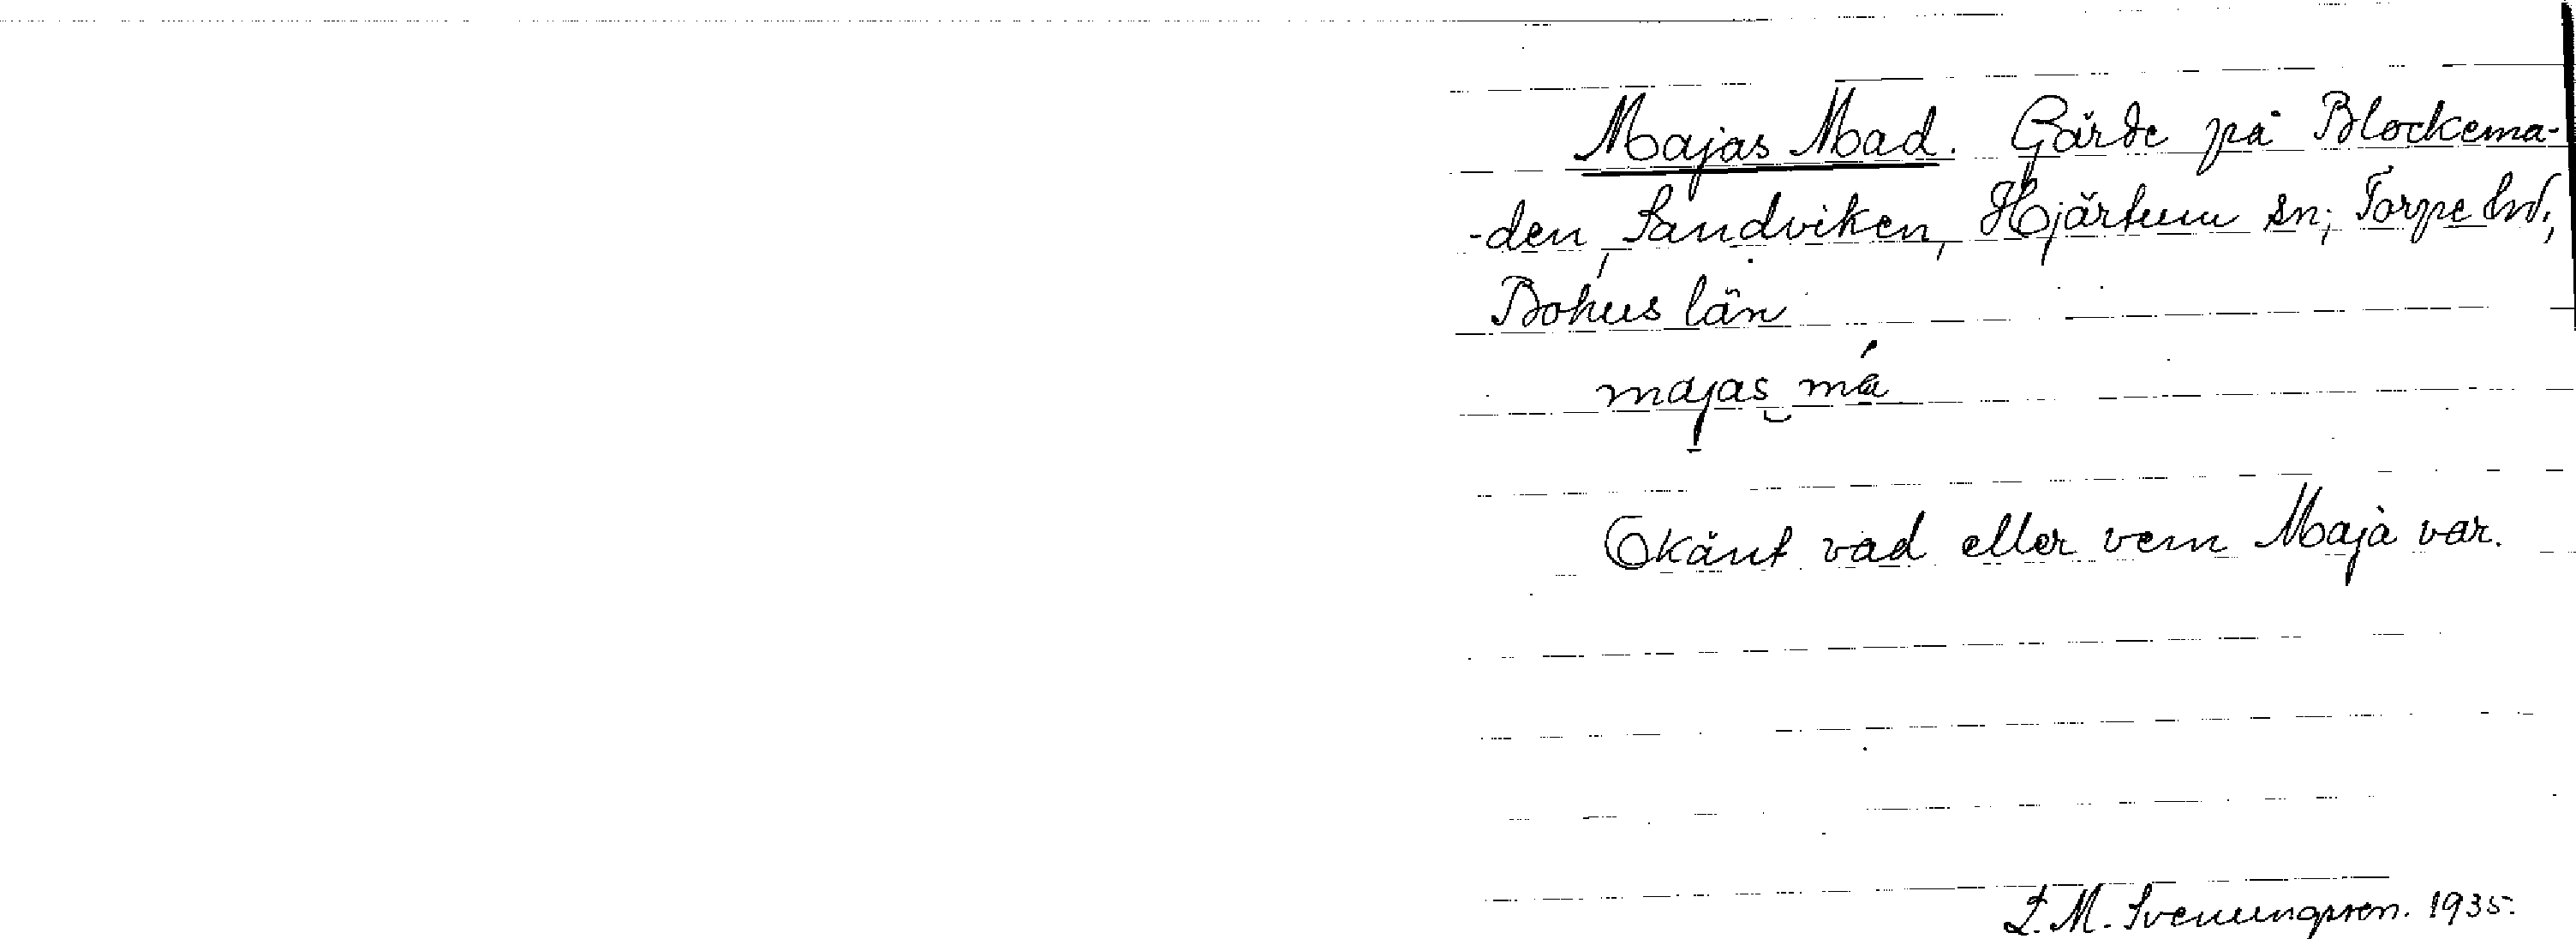 Majas Mad. Gärde på Blockema-
-den, Sandviken, Hjärtum sn, Torpe hd,
Bohus län
majas má
Okänt vad eller vem Maja var.
L. M. Svenungsson. 1935.